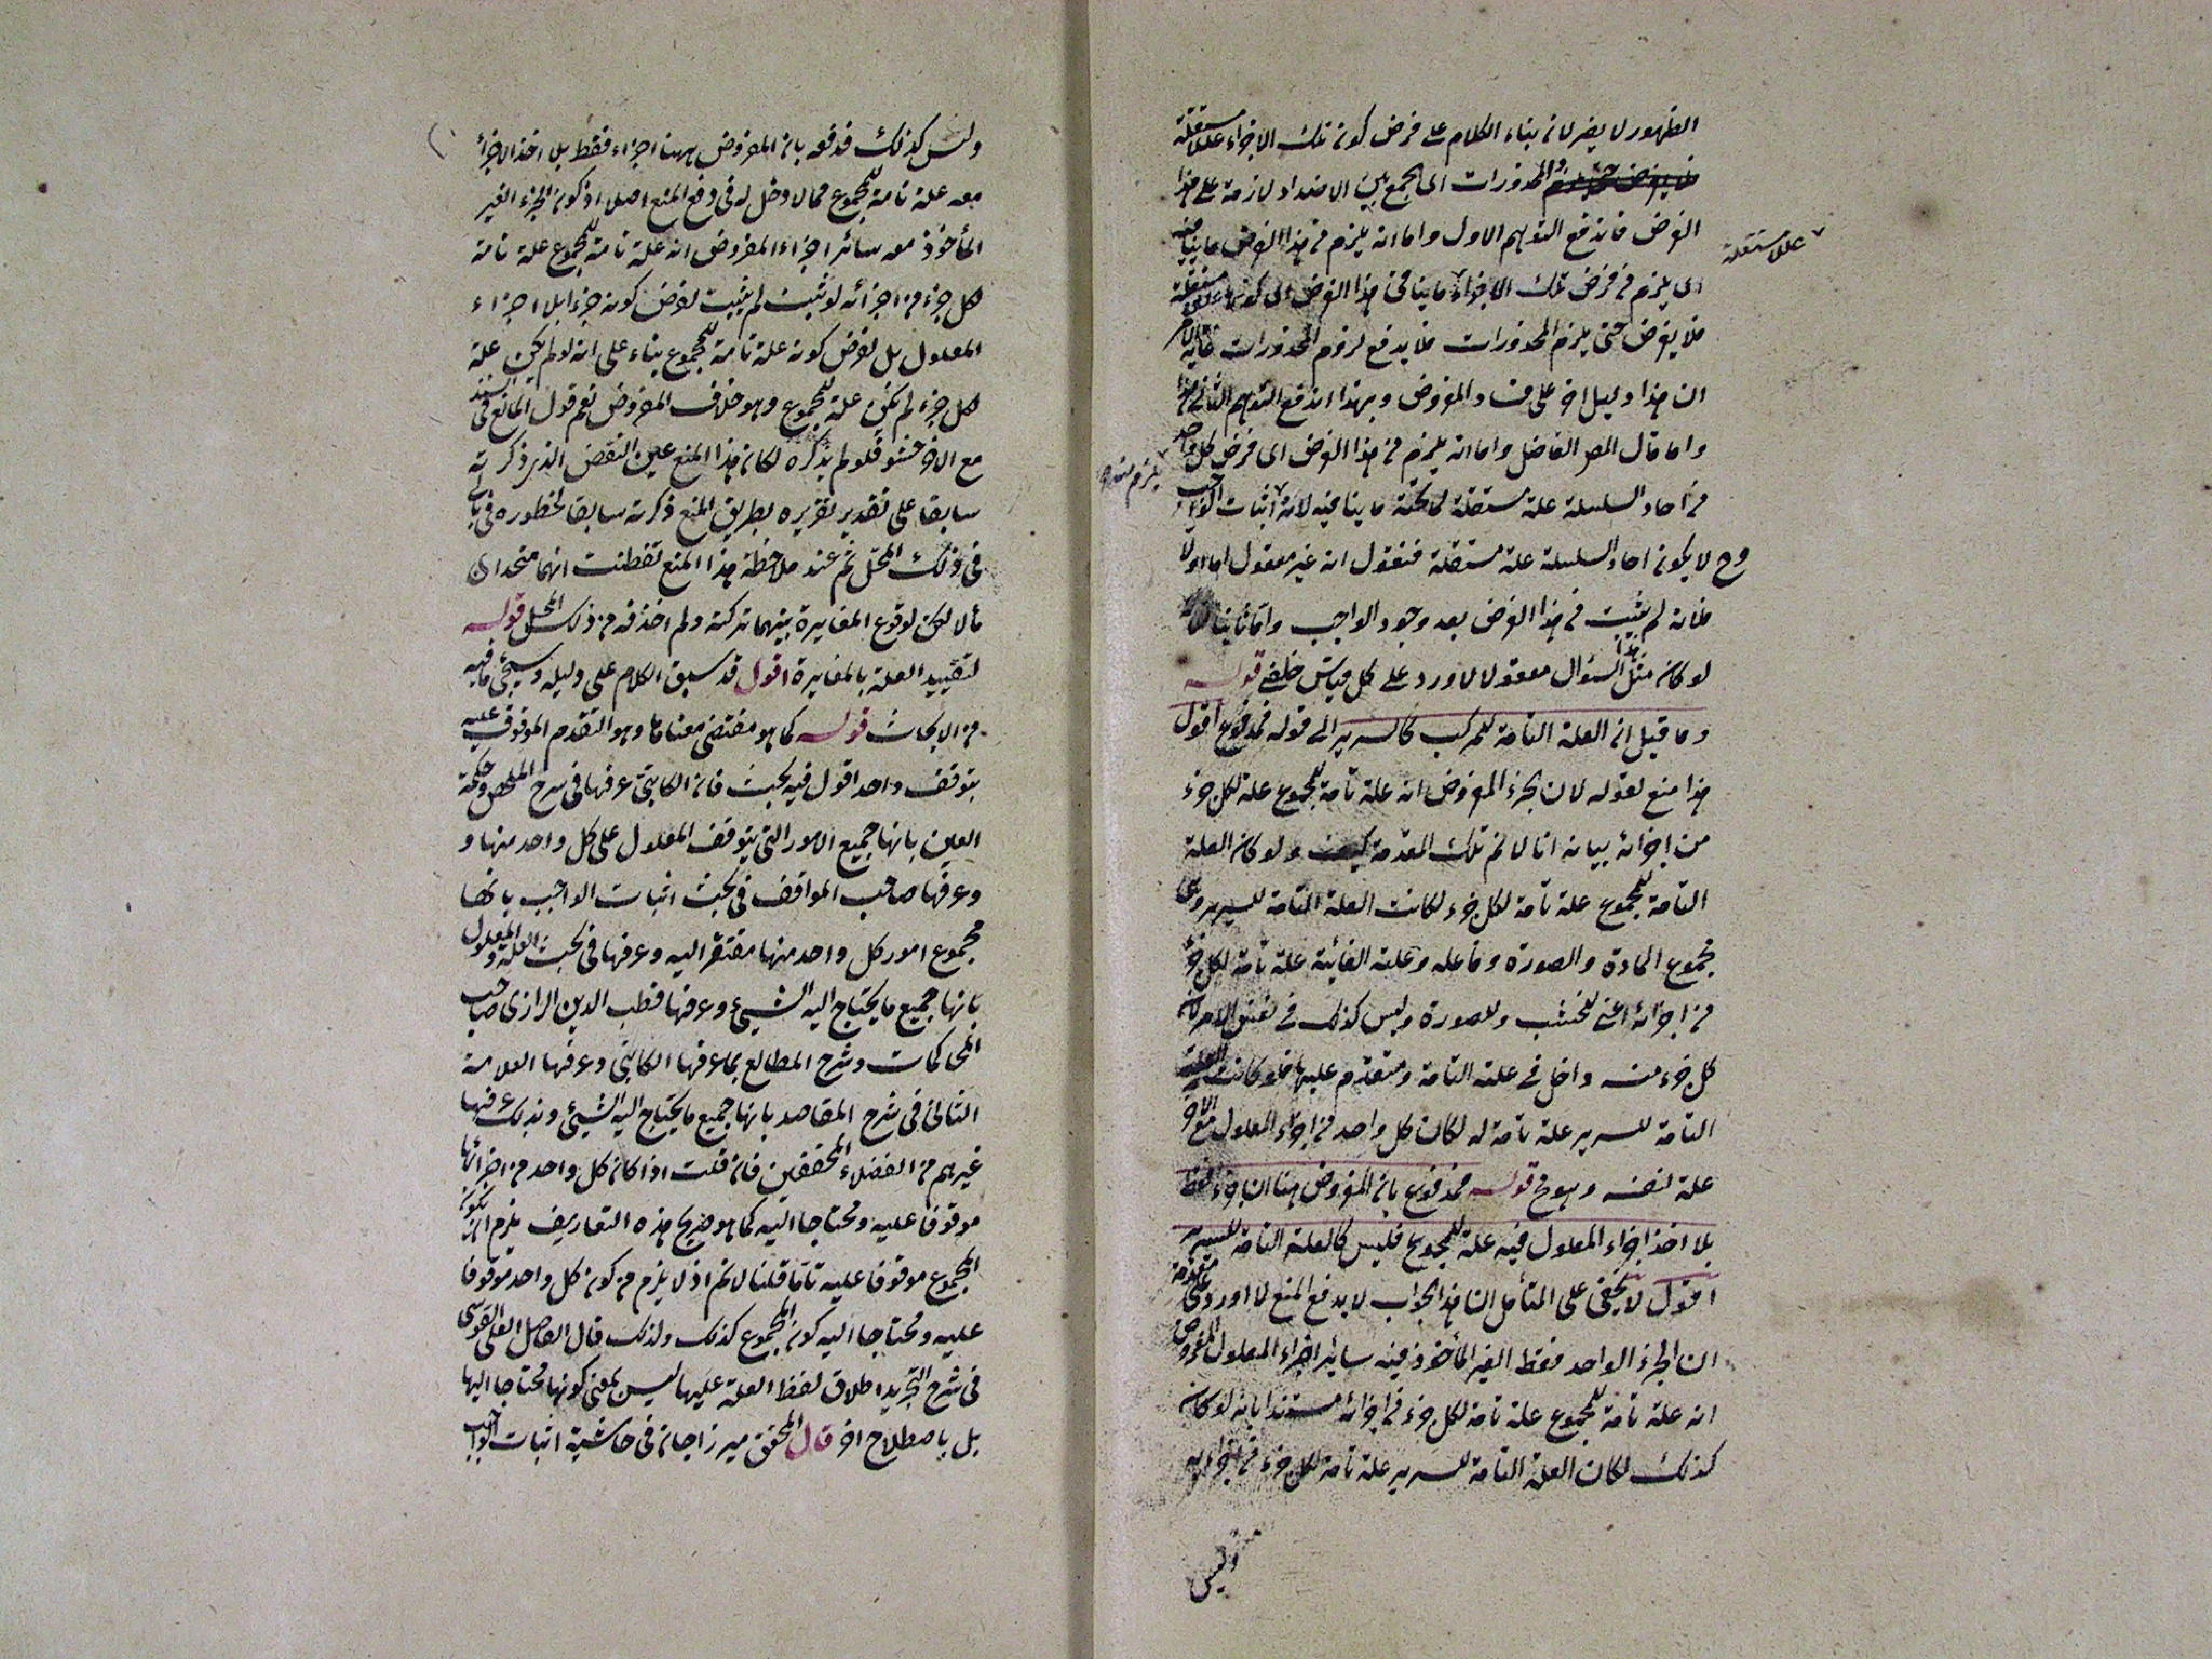 الظهور لا يضر لان بناء الكلام على فرض كون تلك الاجزاء عللا مستقلة
المحذورات اى الجمع بين الاضداد لازمة على هذا
الفرض فاندفع التوهم الاول واما انه يلزم من هذا الفرض ما ينافيه
اى يلزم من فرض تلك الاجزاء ما ينافى هذا الفرض اى كونها عللا مستقلة
عللا مستقلة
فلا يفرض حتى يلزم المحذورات فلا يدفع لزوم المحذورات غاية الامر
ان هذا دليل اخر على فساد المفروض وبهذا اندفع التوهم الثانى
واما قال المص الفاضل واما انه يلزم من هذا الفرض اى فرض كل واحد
من آحاد السلسلة علة مستقلة لما تحته ما ينافيه لانه اثبات الواجب
يلزم منه
وح لا يكون احاد السلسلة علة مستقلة فنقول انه غير معقول اما اولا
فلانه لم يثبت من هذا الفرض بعد وجود الواجب واما ثانيا
لو كان مثل هذا السؤال معقولا لاورد على كل قياس خلفى قوله
وما قيل ان العلة التامة للمركب كالسرير الى قوله فمدفوع اقول
هذا منع لقوله لان الجزء المفروض انه علة تامة للمجموع علة لكل جزء
من اجزائه بيانه انا لا نم تلك المقدمة كيف ولو كان العلة
التامة للمجموع علة تامة لكل جزء لكانت العلة التامة للسرير وهى
مجموع المادة والصورة وفاعله وعلته الغائية علة تامة لكل جزء
من اجزائه اعنى للخشب وللصورة وليس كذلك فى نفس الامر لان
كل جزء منه داخل فى علته التامة ومتقدم عليها فلو كانت العلة
التامة للسرير علة تامة له لكان كل واحد من اجزاء المعلول مع الاخر
علة لنفسه وهو مح قوله فمدفوع بان المفروض هنا ان اجزاء فقط
بلا اخذ اجزاء المعلول فيه علة للمجموع فليس كالعلة التامة للسرير
اقول لا يخفى على المتأمل ان هذا الجواب لا يدفع المنع لا اورد على مقدمة
ان الجزء الواحد فقط الغير المأخوذ فيه سائر اجزاء المعلول المفروض
انه علة تامة للمجموع علة تامة لكل جزء من اجزائه مستندا بانه لو كان
كذلك لكان العلة التامة للسرير علة تامة لكل جزء من اجزائه
وليس
وليس كذلك فدفعه بان المفروض ههنا اجزاء فقط بلا اخذ الاجزاء
معه علة تامة للمجموع مما لا دخل له فى دفع المنع اصلا اذ كون الجزء الغير
المأخوذ معه سائر اجزاء المفروض انه علة تامة للمجموع علة تامة
لكل جزء من اجزائه لو ثبت لم يثبت لفرض كونه جزءا بلا اجزاء
المعلول بل لفرض كونه علة تامة للمجموع بناء على انه لو لم يكن علة
لكل جزء لم يكن علة للمجموع وهو خلاف المفروض نعم قول المانع فى السند
مع الاخر حشو فلو لم يذكره لكان هذا المنع عين النقض الذى ذكرته
سابقا على تقدير تقريره بطريق المنع ذكرته سابقا لخطوره فى بالى
فى ذلك المحل ثم عند ملاحظة هذا المنع تفطنت انهما متحدان
مآلا لكن لوقوع المغايرة بينهما تركته ولم احذفه من ذلك المحل قوله
لتقييد العلة بالمغايرة اقول قد سبق الكلام على دليله وسيجئ ما فيه
من الابحاث قوله كما هو مقتضى معناها وهو التقدم الموقوف عليه
بتوقف واحد اقول فيه بحث فان الكاتبى عرفها فى شرح الملخص وحكمة
العين بانها جميع الامور التى يتوقف المعلول على كل واحد منها و
وعرفها صاحب المواقف فى بحث اثبات الواجب بانها
مجموع امور كل واحد منها مفتقر اليه وعرفها فى بحث العلة والمعلول
بانها جميع ما يحتاج اليه الشيئ وعرفها قطب الدين الرازى صاحب
المحاكمات وشرح المطالع بما عرفها الكاتبى وعرفها العلامة
الثانى فى شرح المقاصد بانها جميع ما يحتاج اليه الشيئ وبذلك عرفها
غيرهم من الفضلاء المحققين فان قلت اذا كان كل واحد من اجزائها
موقوفا عليه ومحتاجا اليه كما هو صريح هذه التعاريف يلزم ان يكون
المجموع موقوفا عليه تاما قلنا لا نم اذ لا يلزم من كون كل واحد موقوفا
عليه ومحتاجا اليه كون المجموع كذلك ولذلك قال الفاضل العلى القوسى
فى شرح التجريد اطلاق لفظ العلة عليها ليس بمعنى كونها محتاجا اليها
بل باصطلاح اخر قال المحقق ميرزا جان فى حاشية اثبات الواجب